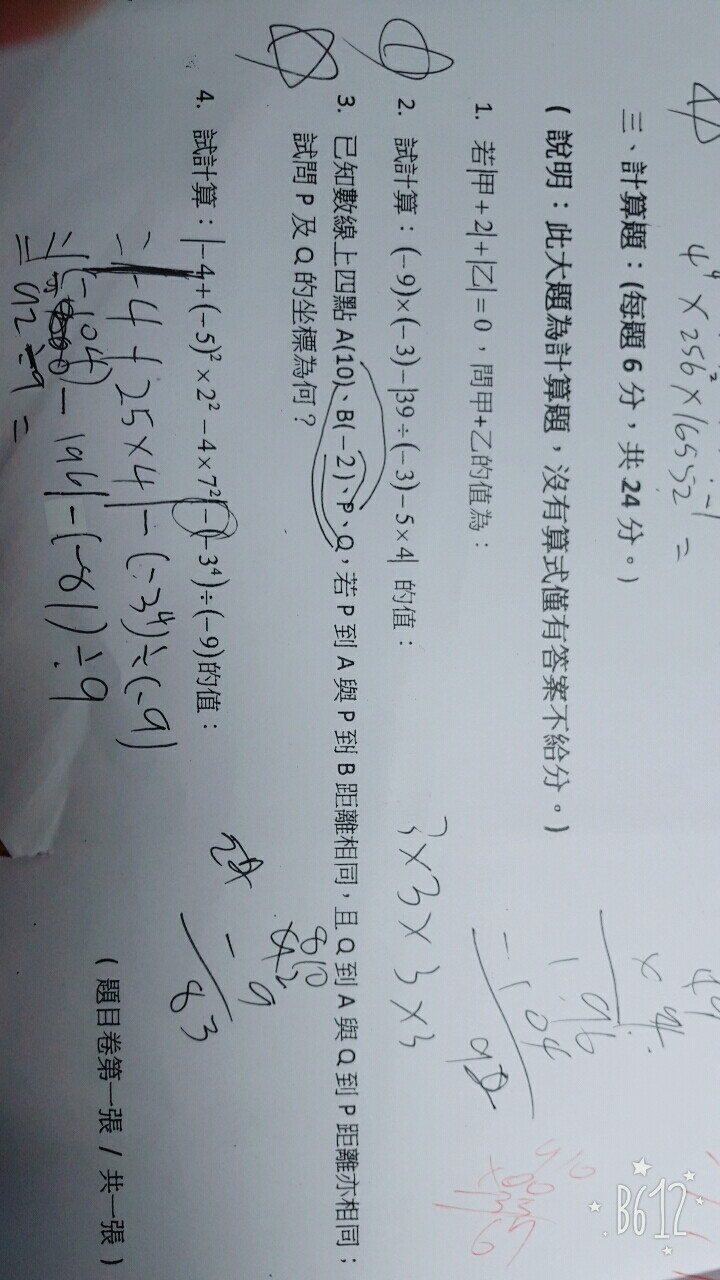 4⁴×256²×16552⁻¹ =
三、計算題：(每題 6 分，共 24 分。)
( 說明：此大題為計算題，沒有算式僅有答案不給分。)
1. 若|甲+2|+|乙|=0，問甲+乙的值為：
2. 試計算：(−9)×(−3)−|39÷(−3)−5×4| 的值：
3×3×3×3
3. 已知數線上四點 A(10)、B(−2)、P、Q，若 P 到 A 與 P 到 B 距離相同，且 Q 到 A 與 Q 到 P 距離亦相同；
試問 P 及 Q 的坐標為何？
4. 試計算：|−4+(−5)²×2²−4×7²|−(−3⁴)÷(−9)的值：
-4+25×4|-(-3⁴)÷(-9)
-196|-(-81)÷9
=92÷9=
196
-104
92
-9
83
(題目卷第一張 / 共一張)
B612